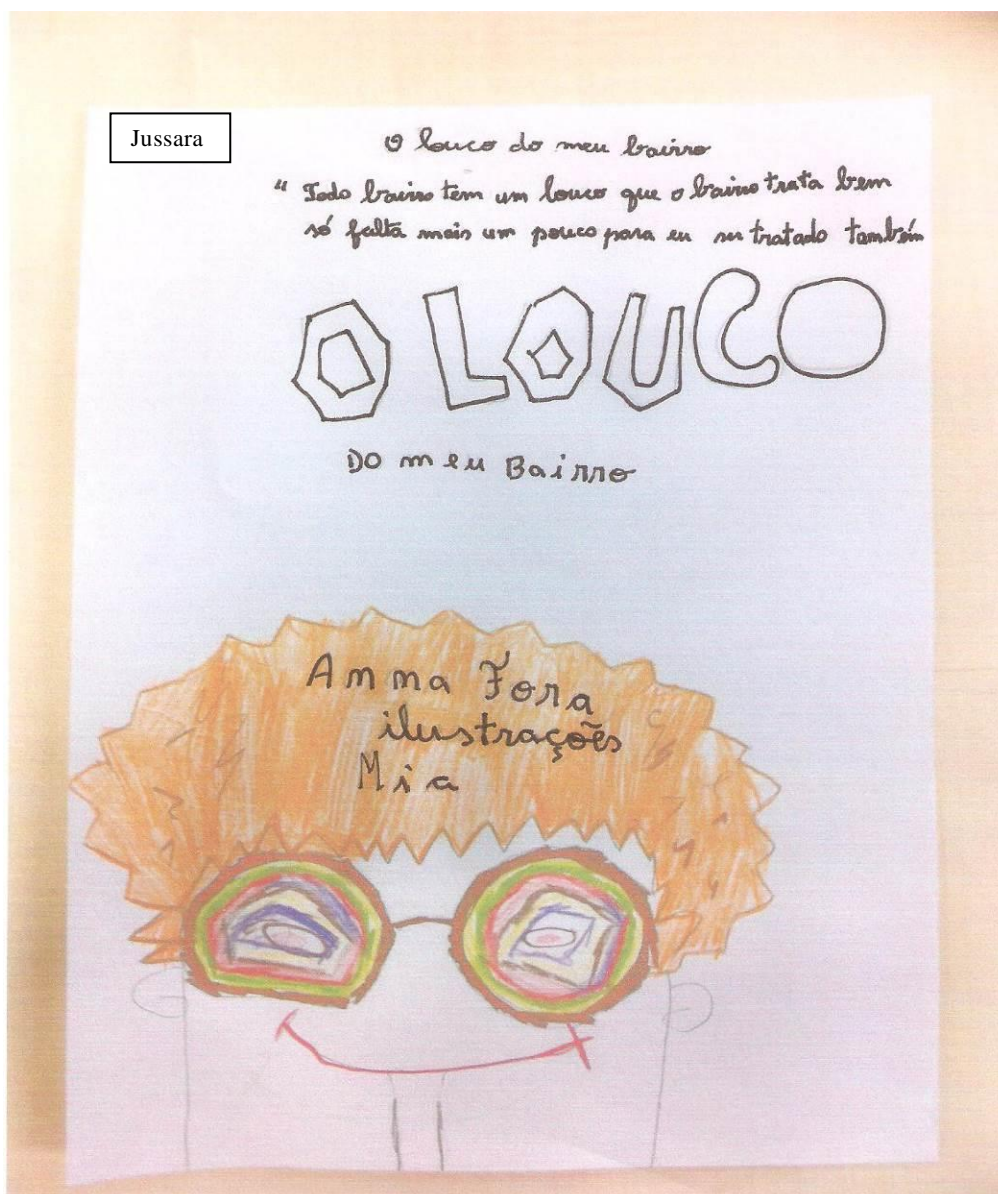 Jussara
O louco do meu bairro
" Todo bairro tem um louco que o bairro trata bem
só falta mais um pouco para eu ser tratado também
O LOUCO
DO meu Bairro
Anna Fora
ilustrações
Mia